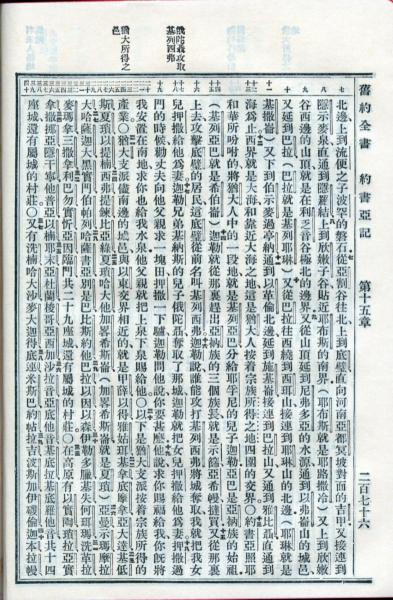 舊約全書 約書亞記 第十五章 二百七十六
北邊上到流便之子波罕的磐石從亞割谷往北上到底璧直向河南亞都冥坡對面的吉甲又接連到
隱示麥泉直通到隱羅結上到欣嫩子谷貼近耶布斯的南界（耶布斯就是耶路撒冷）又上到欣嫩
谷西邊的山頂就是在利乏音谷極北的邊界又從山頂延到尼弗多亞的水源通到以弗崙山的城邑
又延到巴拉（巴拉就是基列耶琳）又從巴拉往西繞到西珥山接連到耶琳山的北邊（耶琳就是
基撒崙）又下到伯示麥過亭納通到以革倫北邊延到施基崙接連到巴拉山又通到雅比聶直通到
海為止西界就是大海和靠近大海之地這是猶大人按着宗族所得之地四圍的交界〇約書亞照耶
和華所吩咐的將猶大人中的一段地就是基列亞巴分給耶孚尼的兒子迦勒亞巴是亞衲族的始祖
（基列亞巴就是希伯崙）迦勒就從那裏趕出亞衲族的三個族長就是示篩亞希幔撻買又從那裏
俄陀聶攻取
基列西弗
上去攻擊底璧的居民這底璧從前名叫基列西弗迦勒說誰能攻打基列西弗將城奪取我就把我女
兒押撒給他為妻迦勒兄弟基納斯的兒子俄陀聶奪取了那城迦勒就把女兒押撒給他為妻押撒過
門的時候勸丈夫向他父親求一塊田押撒一下驢迦勒問他說你要甚麼他說求你賜福給我你既將
我安置在南地求你也給我水泉他父親就把上泉下泉賜給他〇以下是猶大支派按着宗族所得的
猶大所得之
邑
產業〇猶大支派儘南邊的城邑與以東交界相近的就是甲薛以得雅姑珥基拿底摩拿亞大達基低
斯夏瑣以提楠西弗提鍊比亞綠夏瑣哈大他加畧希斯崙（加畧希斯崙就是夏瑣）亞曼示瑪摩拉
大哈薩迦大黑實門伯帕列哈薩書亞別是巴比斯約他巴拉以因以森伊勒多臘基失何珥瑪洗革拉
麥瑪拿三撒拿利巴勿實忻亞因臨門共二十九座城還有屬城的村莊〇在高原有以實陶瑣拉亞實
拿撒挪亞隱干寧他普亞以楠耶末亞杜蘭梭哥亞西加沙拉音亞底他音基底拉基底羅他音共十四
座城還有屬城的村莊〇又有洗楠哈大沙麥大迦得底連米斯巴約帖拉吉波斯加伊磯倫迦本拉幔